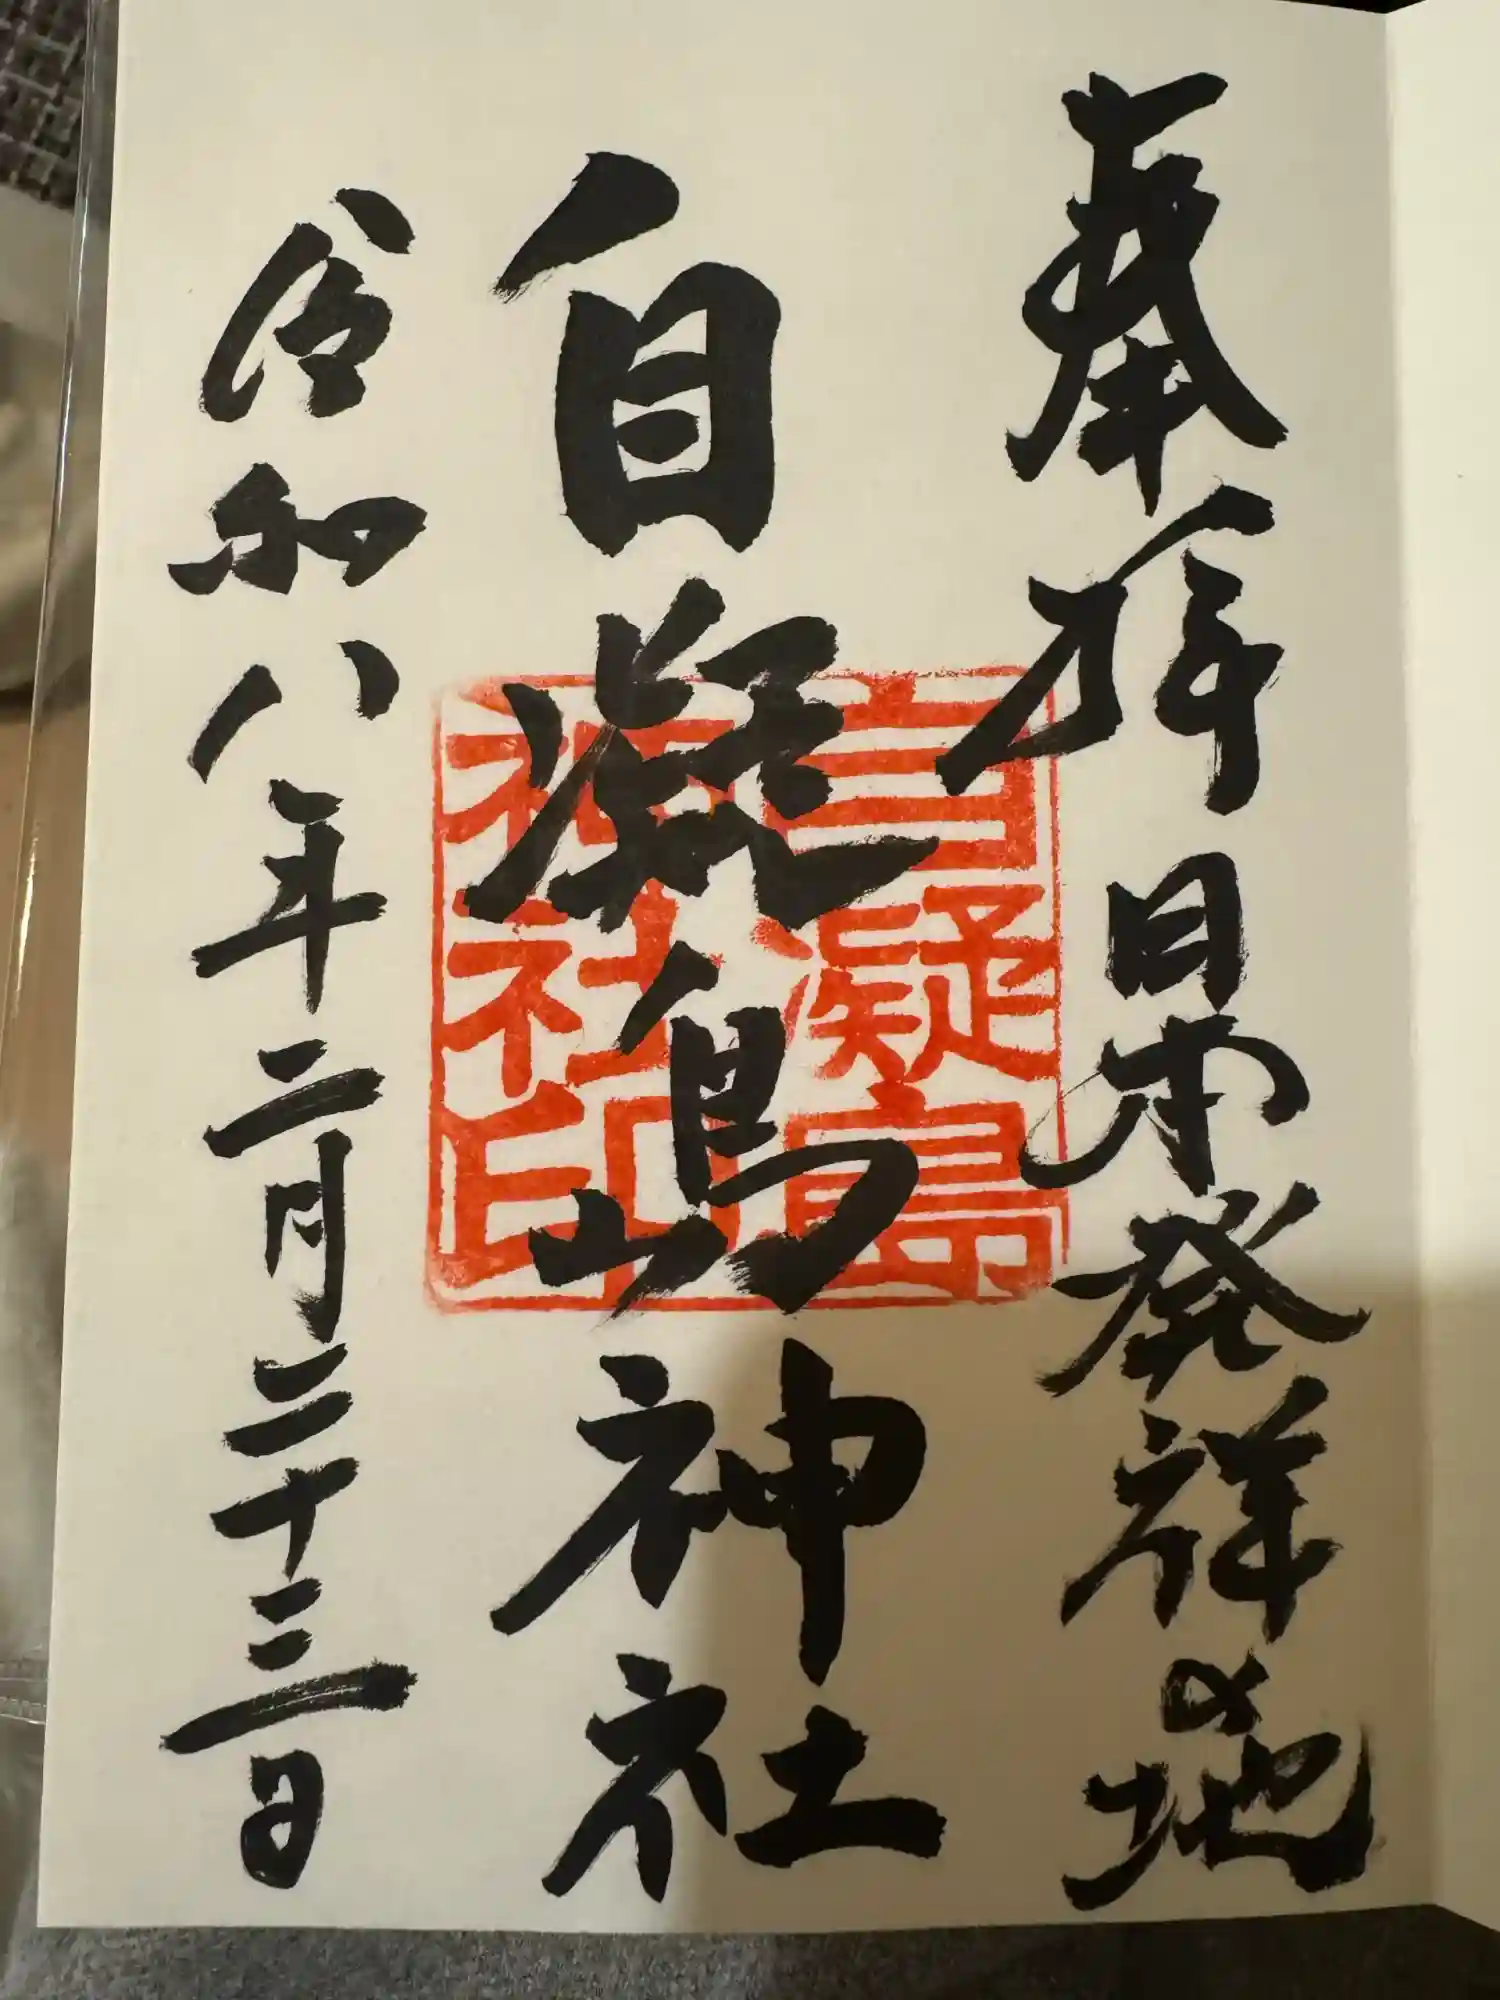 奉拝 日本発祥の地
自凝島神社
令和八年二月二十三日
自凝島
神社印